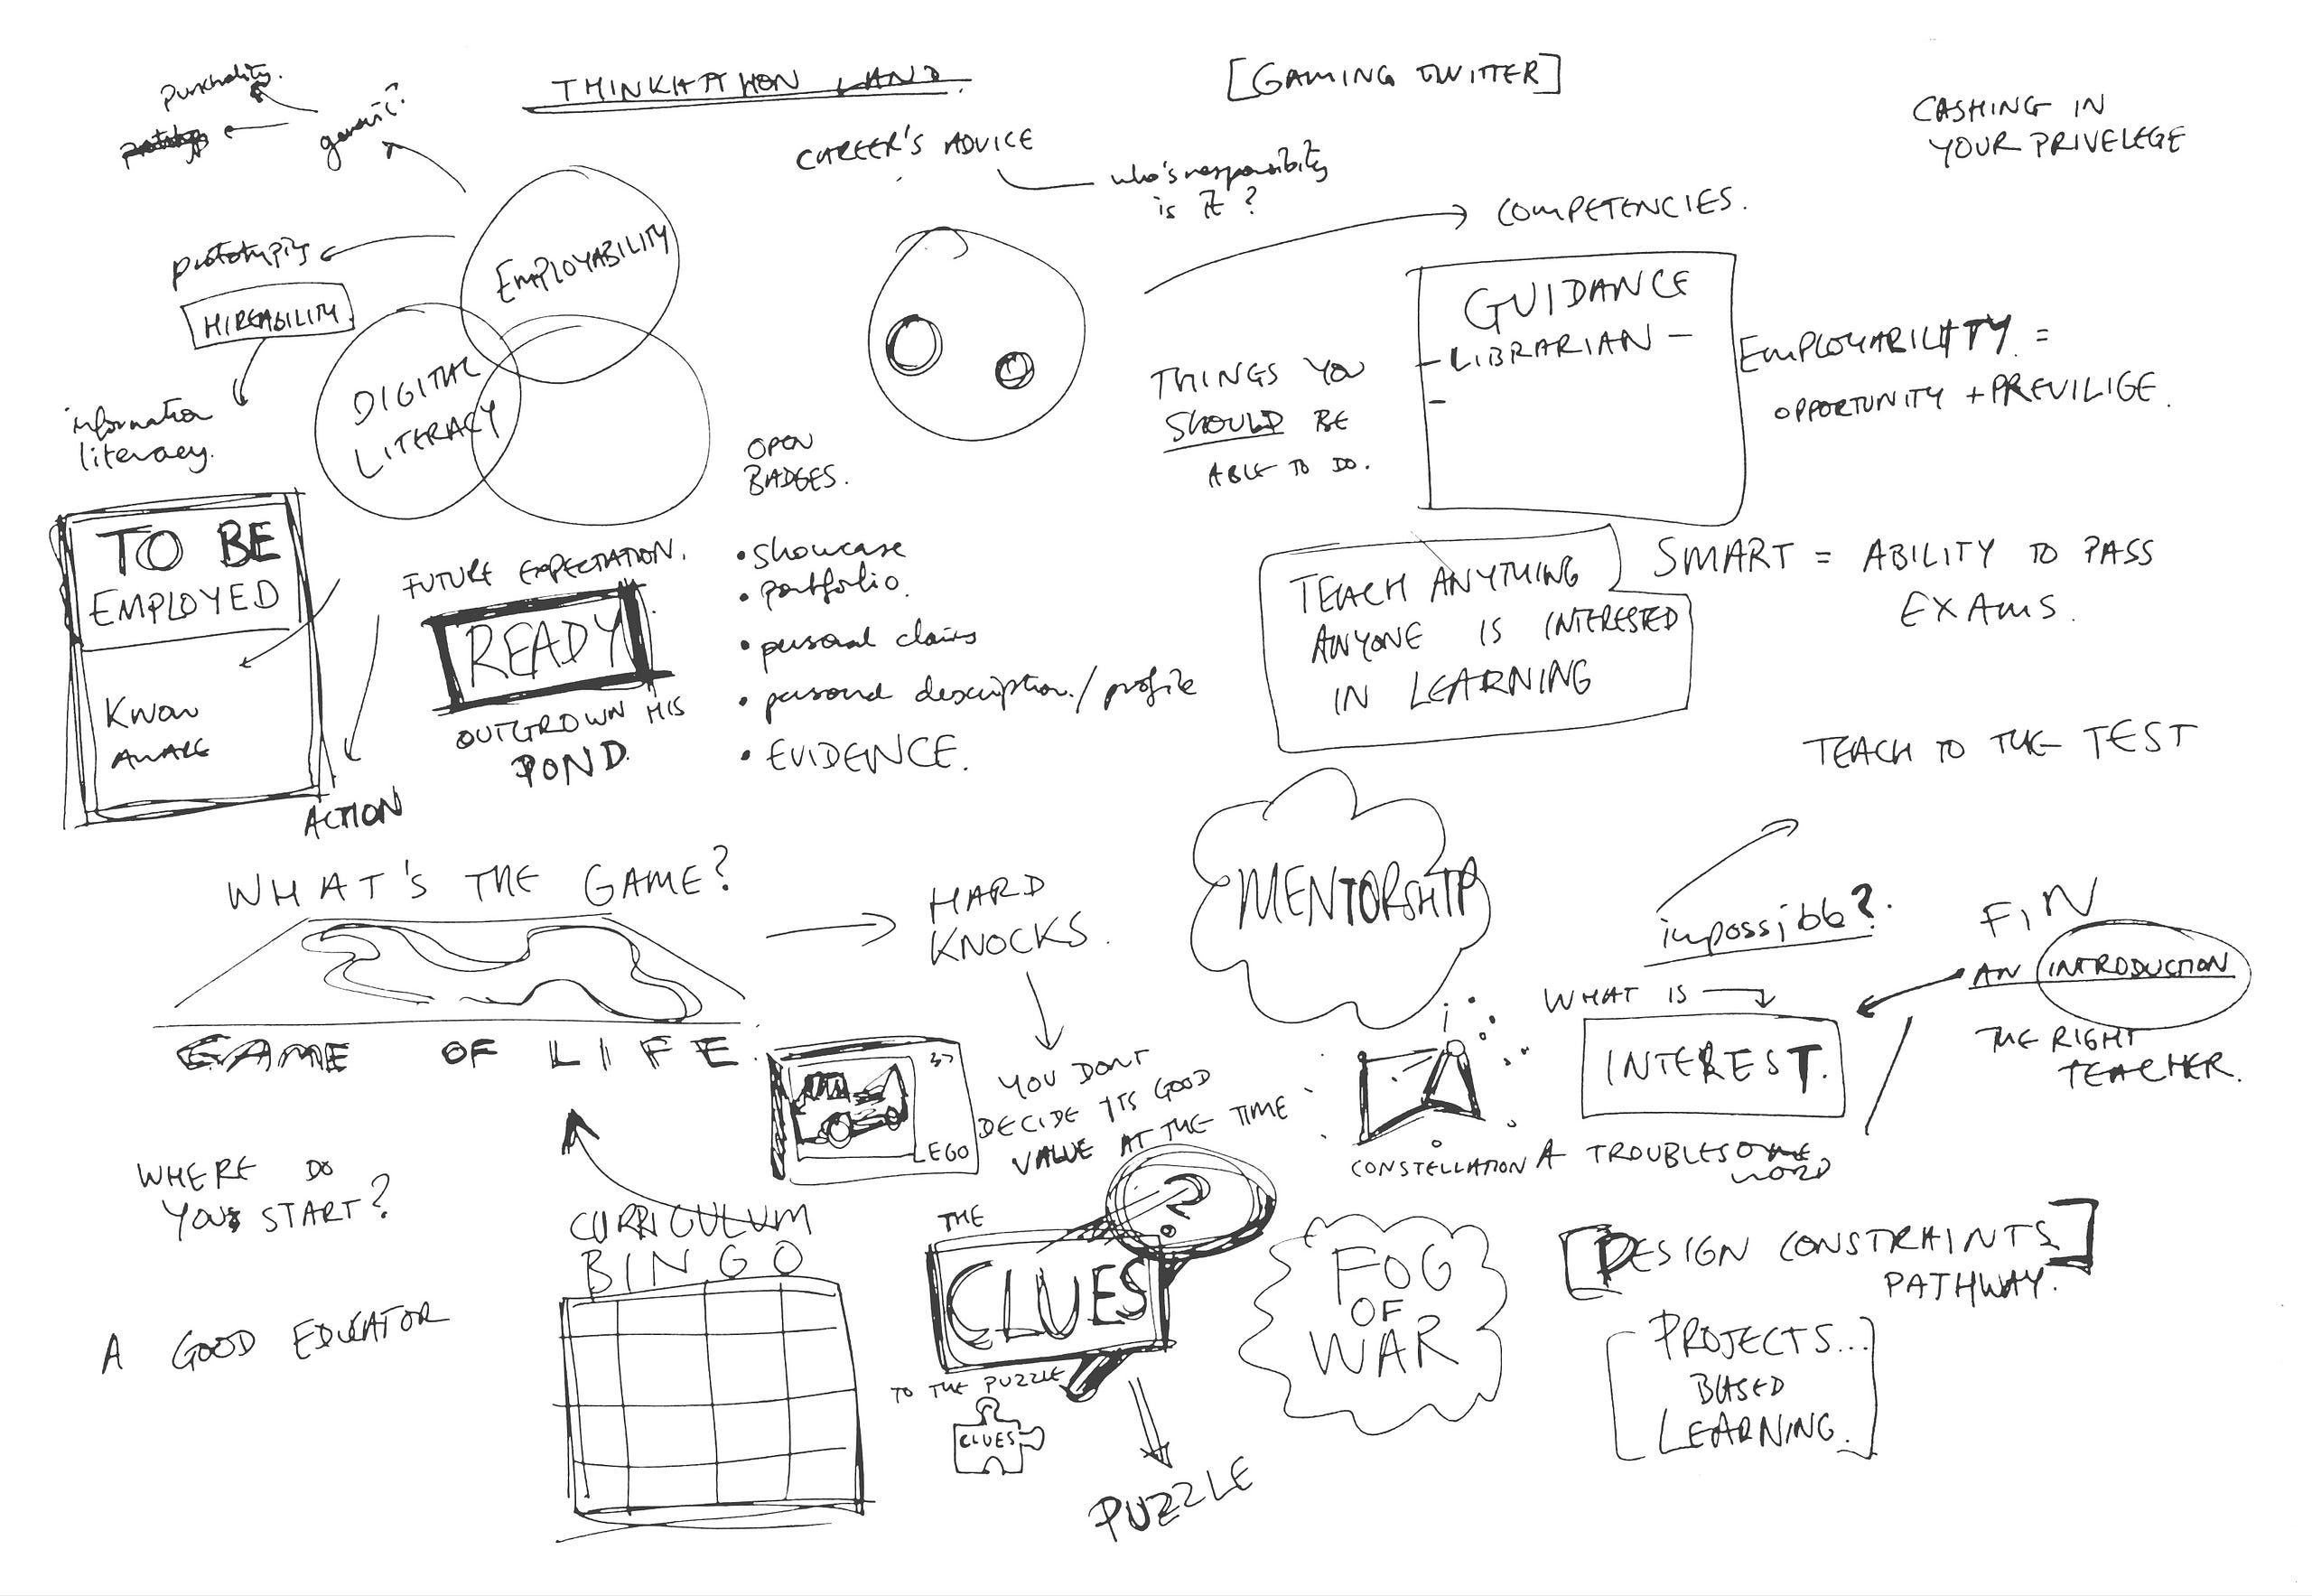 THINKATHON LAND
[GAMING TWITTER]
CASHING IN
YOUR PRIVELEGE
Punctuality.
generic?
CAREER'S ADVICE
who's responsibility
is it?
COMPETENCIES.
prototyping
HIREABILITY
information
literacy.
EMPLOYABILITY
DIGITAL
LITERACY
THINGS YOU
SHOULD BE
ABLE TO DO.
GUIDANCE
- LIBRARIAN -
-
EMPLOYABILITY =
OPPORTUNITY + PREVILIGE.
TO BE
EMPLOYED
KNOW
AWARE
ACTION
FUTURE EXPECTATION.
READY
OUTGROWN HIS
POND.
OPEN
BADGES.
• showcase
• portfolio.
• personal claims
• personal description / profile
• EVIDENCE.
TEACH ANYTHING
ANYONE IS INTERESTED
IN LEARNING
SMART = ABILITY TO PASS
EXAMS.
TEACH TO THE TEST
WHAT'S THE GAME?
GAME OF LIFE.
HARD
KNOCKS.
MENTORSHIP
impossible?
FIN
AN INTRODUCTION
THE RIGHT
TEACHER.
WHAT IS
INTEREST.
A TROUBLESOME
WORD
LEGO
YOU DONT
DECIDE ITS GOOD
VALUE AT THE TIME
CONSTELLATION
WHERE DO
YOU START?
A GOOD EDUCATOR
CURRICULUM
BINGO
THE
CLUES
?
TO THE PUZZLE
CLUES
PUZZLE
FOG
OF
WAR
[DESIGN CONSTRAINTS]
PATHWAY.
[PROJECTS...
BASED
LEARNING.]